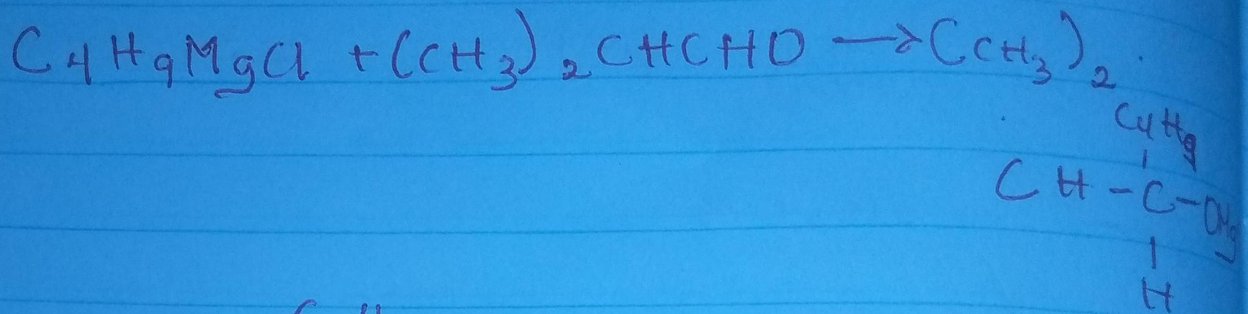 C4H9MgCl + (CH3)2CHCHO → (CH3)2
C4H9
|
CH - C - OMg
|
H